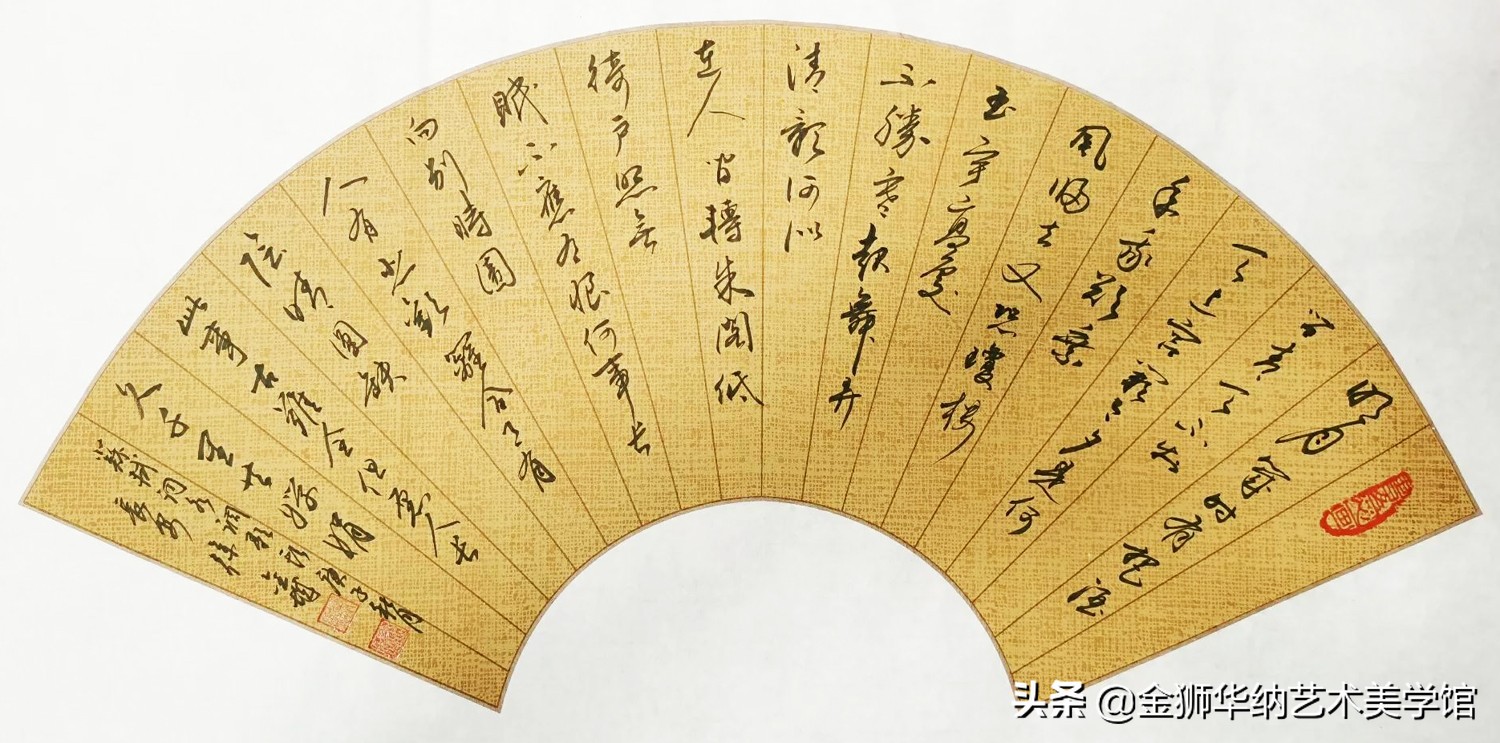 明月幾时有把酒
问青天不知
天上宫闕今夕是何
年我欲乘
风归去又恐瓊楼
玉宇高處
不勝寒起舞弄
清影何似
在人间轉朱阁低
绮户照无
眠不應有恨何事长
向别時圆
人有悲歡離合月有
阴晴圆缺
此事古難全但愿人长
久千里共婵娟
蘇轼词水调歌头庚子秋月
长安
头条 @金狮华纳艺术美学馆